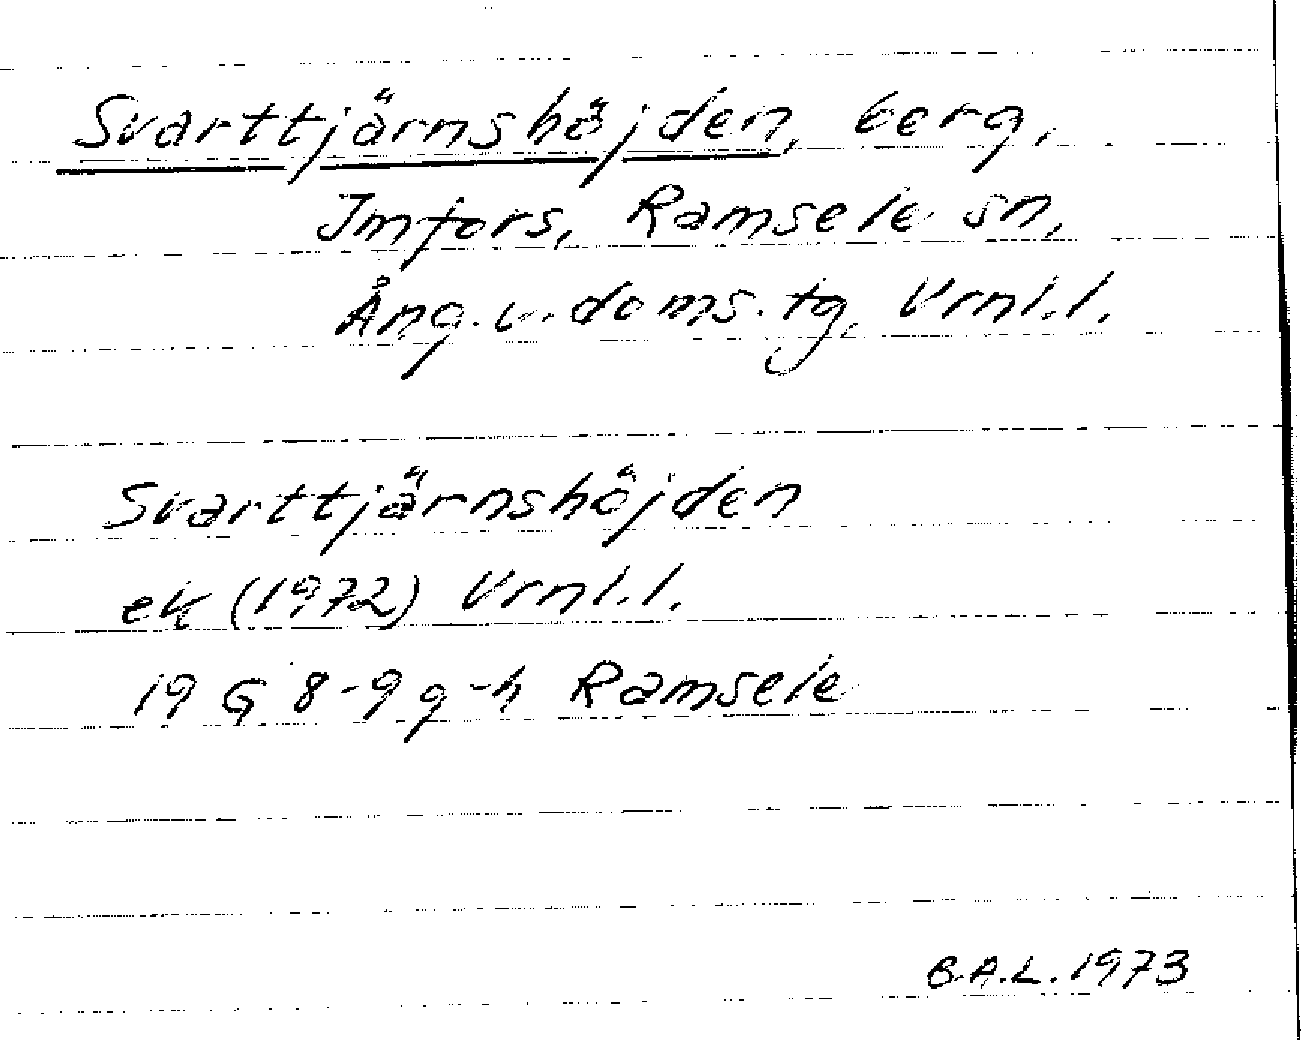 Svarttjärnshöjden, berg,
Imfors, Ramsele sn,
Ång. v. doms. tg, Vrnl.l.
Svarttjärnshöjden
ek (1972) Vrnl.l.
19 G 8-9 g-h Ramsele
B.A.L. 1973